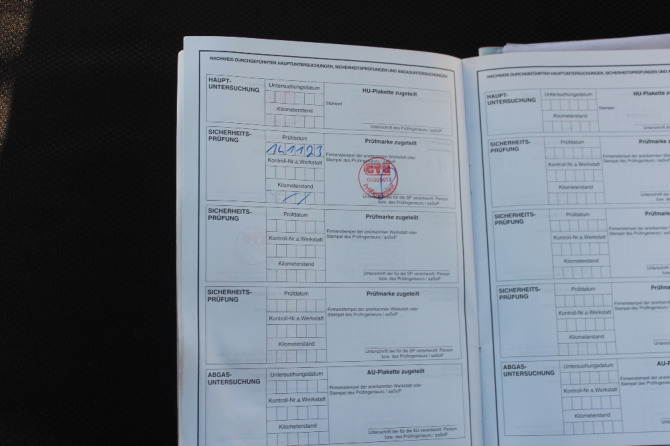 NACHWEIS DURCHGEFÜHRTER HAUPTUNTERSUCHUNGEN, SICHERHEITSPRÜFUNGEN UND ABGASUNTERSUCHUNGEN
HAUPT-
UNTERSUCHUNG
Untersuchungsdatum
HU-Plakette zugeteilt
Stempel
Kilometerstand
Unterschrift des Prüfingenieurs / aaSoP
SICHERHEITS-
PRÜFUNG
Prüfdatum
Prüfmarke zugeteilt
14 11 23
Firmenstempel der anerkannten Werkstatt oder
Stempel des Prüfingenieurs / aaSoP
Kontroll-Nr.a.Werkstatt
Kilometerstand
Unterschrift der für die SP verantwortl. Person
bzw. des Prüfingenieurs / aaSoP
SICHERHEITS-
PRÜFUNG
Prüfdatum
Prüfmarke zugeteilt
Firmenstempel der anerkannten Werkstatt oder
Stempel des Prüfingenieurs / aaSoP
Kontroll-Nr.a.Werkstatt
Kilometerstand
Unterschrift der für die SP verantwortl. Person
bzw. des Prüfingenieurs / aaSoP
SICHERHEITS-
PRÜFUNG
Prüfdatum
Prüfmarke zugeteilt
Firmenstempel der anerkannten Werkstatt oder
Stempel des Prüfingenieurs / aaSoP
Kontroll-Nr.a.Werkstatt
Kilometerstand
Unterschrift der für die SP verantwortl. Person
bzw. des Prüfingenieurs / aaSoP
ABGAS-
UNTERSUCHUNG
Untersuchungsdatum
AU-Plakette zugeteilt
Firmenstempel der anerkannten Werkstatt oder
Stempel des Prüfingenieurs / aaSoP
Kontroll-Nr.a.Werkstatt
Kilometerstand
Unterschrift der für die AU verantwortl. Person
bzw. des Prüfingenieurs / aaSoP
NACHWEIS DURCHGEFÜHRTER HAUPTUNTERSUCHUNGEN, SICHERHEITSPRÜFUNGEN
HAUPT-
UNTERSUCHUNG
Untersuchungsdatum
HU-Plakette
Stempel
Kilometerstand
SICHERHEITS-
PRÜFUNG
Prüfdatum
Prüfmarke
Firmenstempel der anerkannten
Stempel des Prüfingenieurs / aaSoP
Kontroll-Nr.a.Werkstatt
Kilometerstand
Unterschrift der für
bzw. des
SICHERHEITS-
PRÜFUNG
Prüfdatum
Prüfmarke
Firmenstempel der anerkannten
Stempel des Prüfingenieurs / aaSoP
Kontroll-Nr.a.Werkstatt
Kilometerstand
SICHERHEITS-
PRÜFUNG
Prüfdatum
Prüfmarke
Firmenstempel der anerkannten
Stempel des Prüfingenieurs / aaSoP
Kontroll-Nr.a.Werkstatt
Kilometerstand
ABGAS-
UNTERSUCHUNG
Untersuchungsdatum
AU-P
Firmenstempel der anerkannten
Stempel des Prüfingenieurs
Kontroll-Nr.a.Werkstatt
Kilometerstand